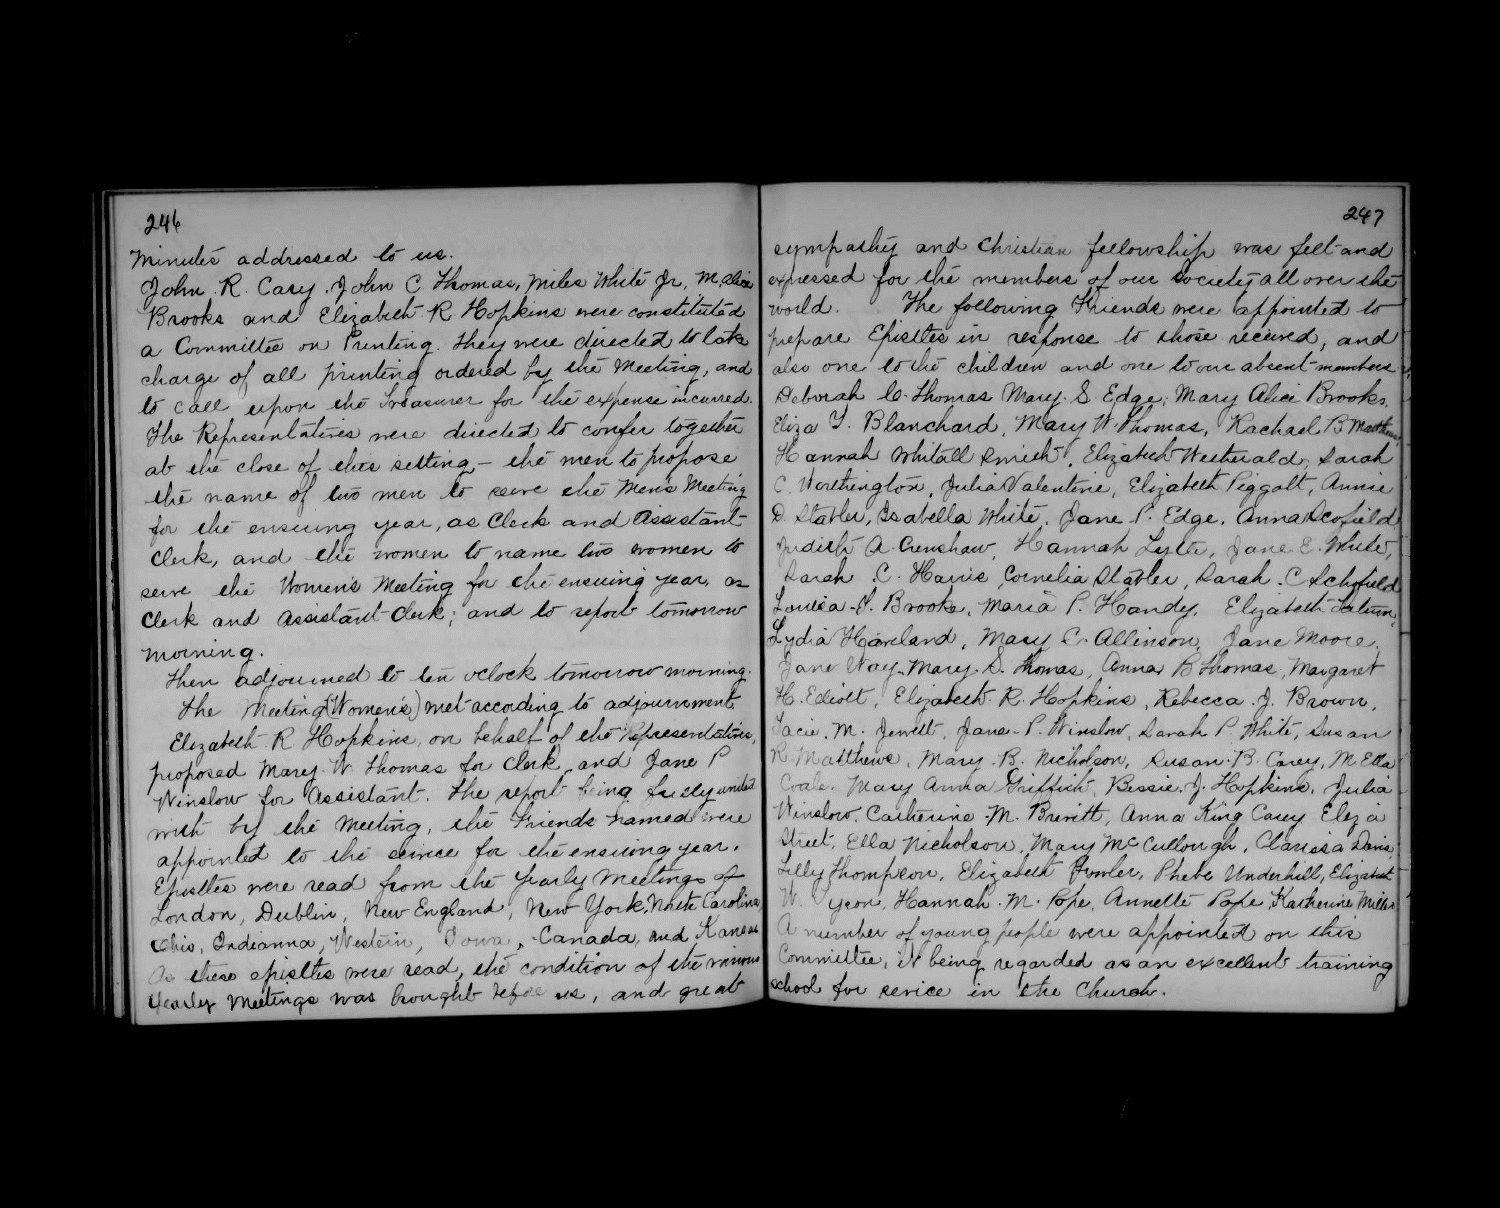 246
Minutes addressed to us.
John R. Cary, John C. Thomas, Miles White Jr, M. Alice
Brooks and Elizabeth R. Hopkins were constituted
a Committee on Printing. They were directed to take
charge of all printing ordered by the Meeting, and
to call upon the Treasurer for the expense incurred.
The Representatives were directed to confer together
at the close of this sitting – the men to propose
the name of two men to serve the Men's Meeting
for the ensuing year, as Clerk and Assistant-
Clerk, and the women to name two women to
serve the Women's Meeting for the ensuing year, as
Clerk and Assistant-Clerk; and to report tomorrow
morning.
Then adjourned to ten o'clock tomorrow morning.
The Meeting (Women's) met according to adjournment.
Elizabeth R Hopkins, on behalf of the Representatives,
proposed Mary W. Thomas for Clerk, and Jane P
Winslow for Assistant. The report being fully united
with by the Meeting, the Friends named were
appointed to the service for the ensuing year.
Epistles were read from the Yearly Meetings of
London, Dublin, New England, New York, North Carolina,
Ohio, Indianna, Western, Iowa, Canada, and Kansas
As these epistles were read, the condition of the various
Yearly Meetings was brought before us, and great
247
sympathy and Christian fellowship was felt and
expressed for the members of our Society all over the
world. The following Friends were appointed to
prepare Epistles in response to those received, and
also one to the children and one to our absent members.
Deborah C. Thomas Mary S. Edge, Mary Alice Brooks,
Eliza T. Blanchard, Mary W. Thomas, Rachael B Matthews
Hannah Whitall Smith, Elizabeth Wetherald, Sarah
C. Worthington, Julia Valentine, Elizabeth Piggott, Annie
D. Stabler, Isabella White, Jane P. Edge, Anna Scofield
Judith A. Crenshaw, Hannah Lytle, Jane E. White,
Sarah C. Harris, Cornelia Stabler, Sarah C Schofield
Louisa S. Brooks, Maria P. Handy, Elizabeth Tatum,
Lydia Haviland, Mary C. Allinson, Jane Moore,
Jane Way, Mary S. Thomas, Anna B Thomas, Margaret
H. Elliott, Elizabeth R. Hopkins, Rebecca J. Brown,
Tacie M. Jewett, Jane P. Winslow, Sarah P. White, Susan
R. Matthews, Mary B. Nicholson, Susan B. Carey, M Ella
Coale, Mary Anna Griffith, Bessie J. Hopkins, Julia
Winslow, Catherine M. Brevitt, Anna King Carey Eliza
Street, Ella Nicholson, Mary McCullough, Clarissa Davis,
Lilly Thompson, Elizabeth Fowler, Phebe Underhill, Elizabeth
W. Yeon, Hannah M. Pope, Annette Pope, Katherine Miller
A number of young people were appointed on this
Committee, it being regarded as an excellent training
school for service in the Church.